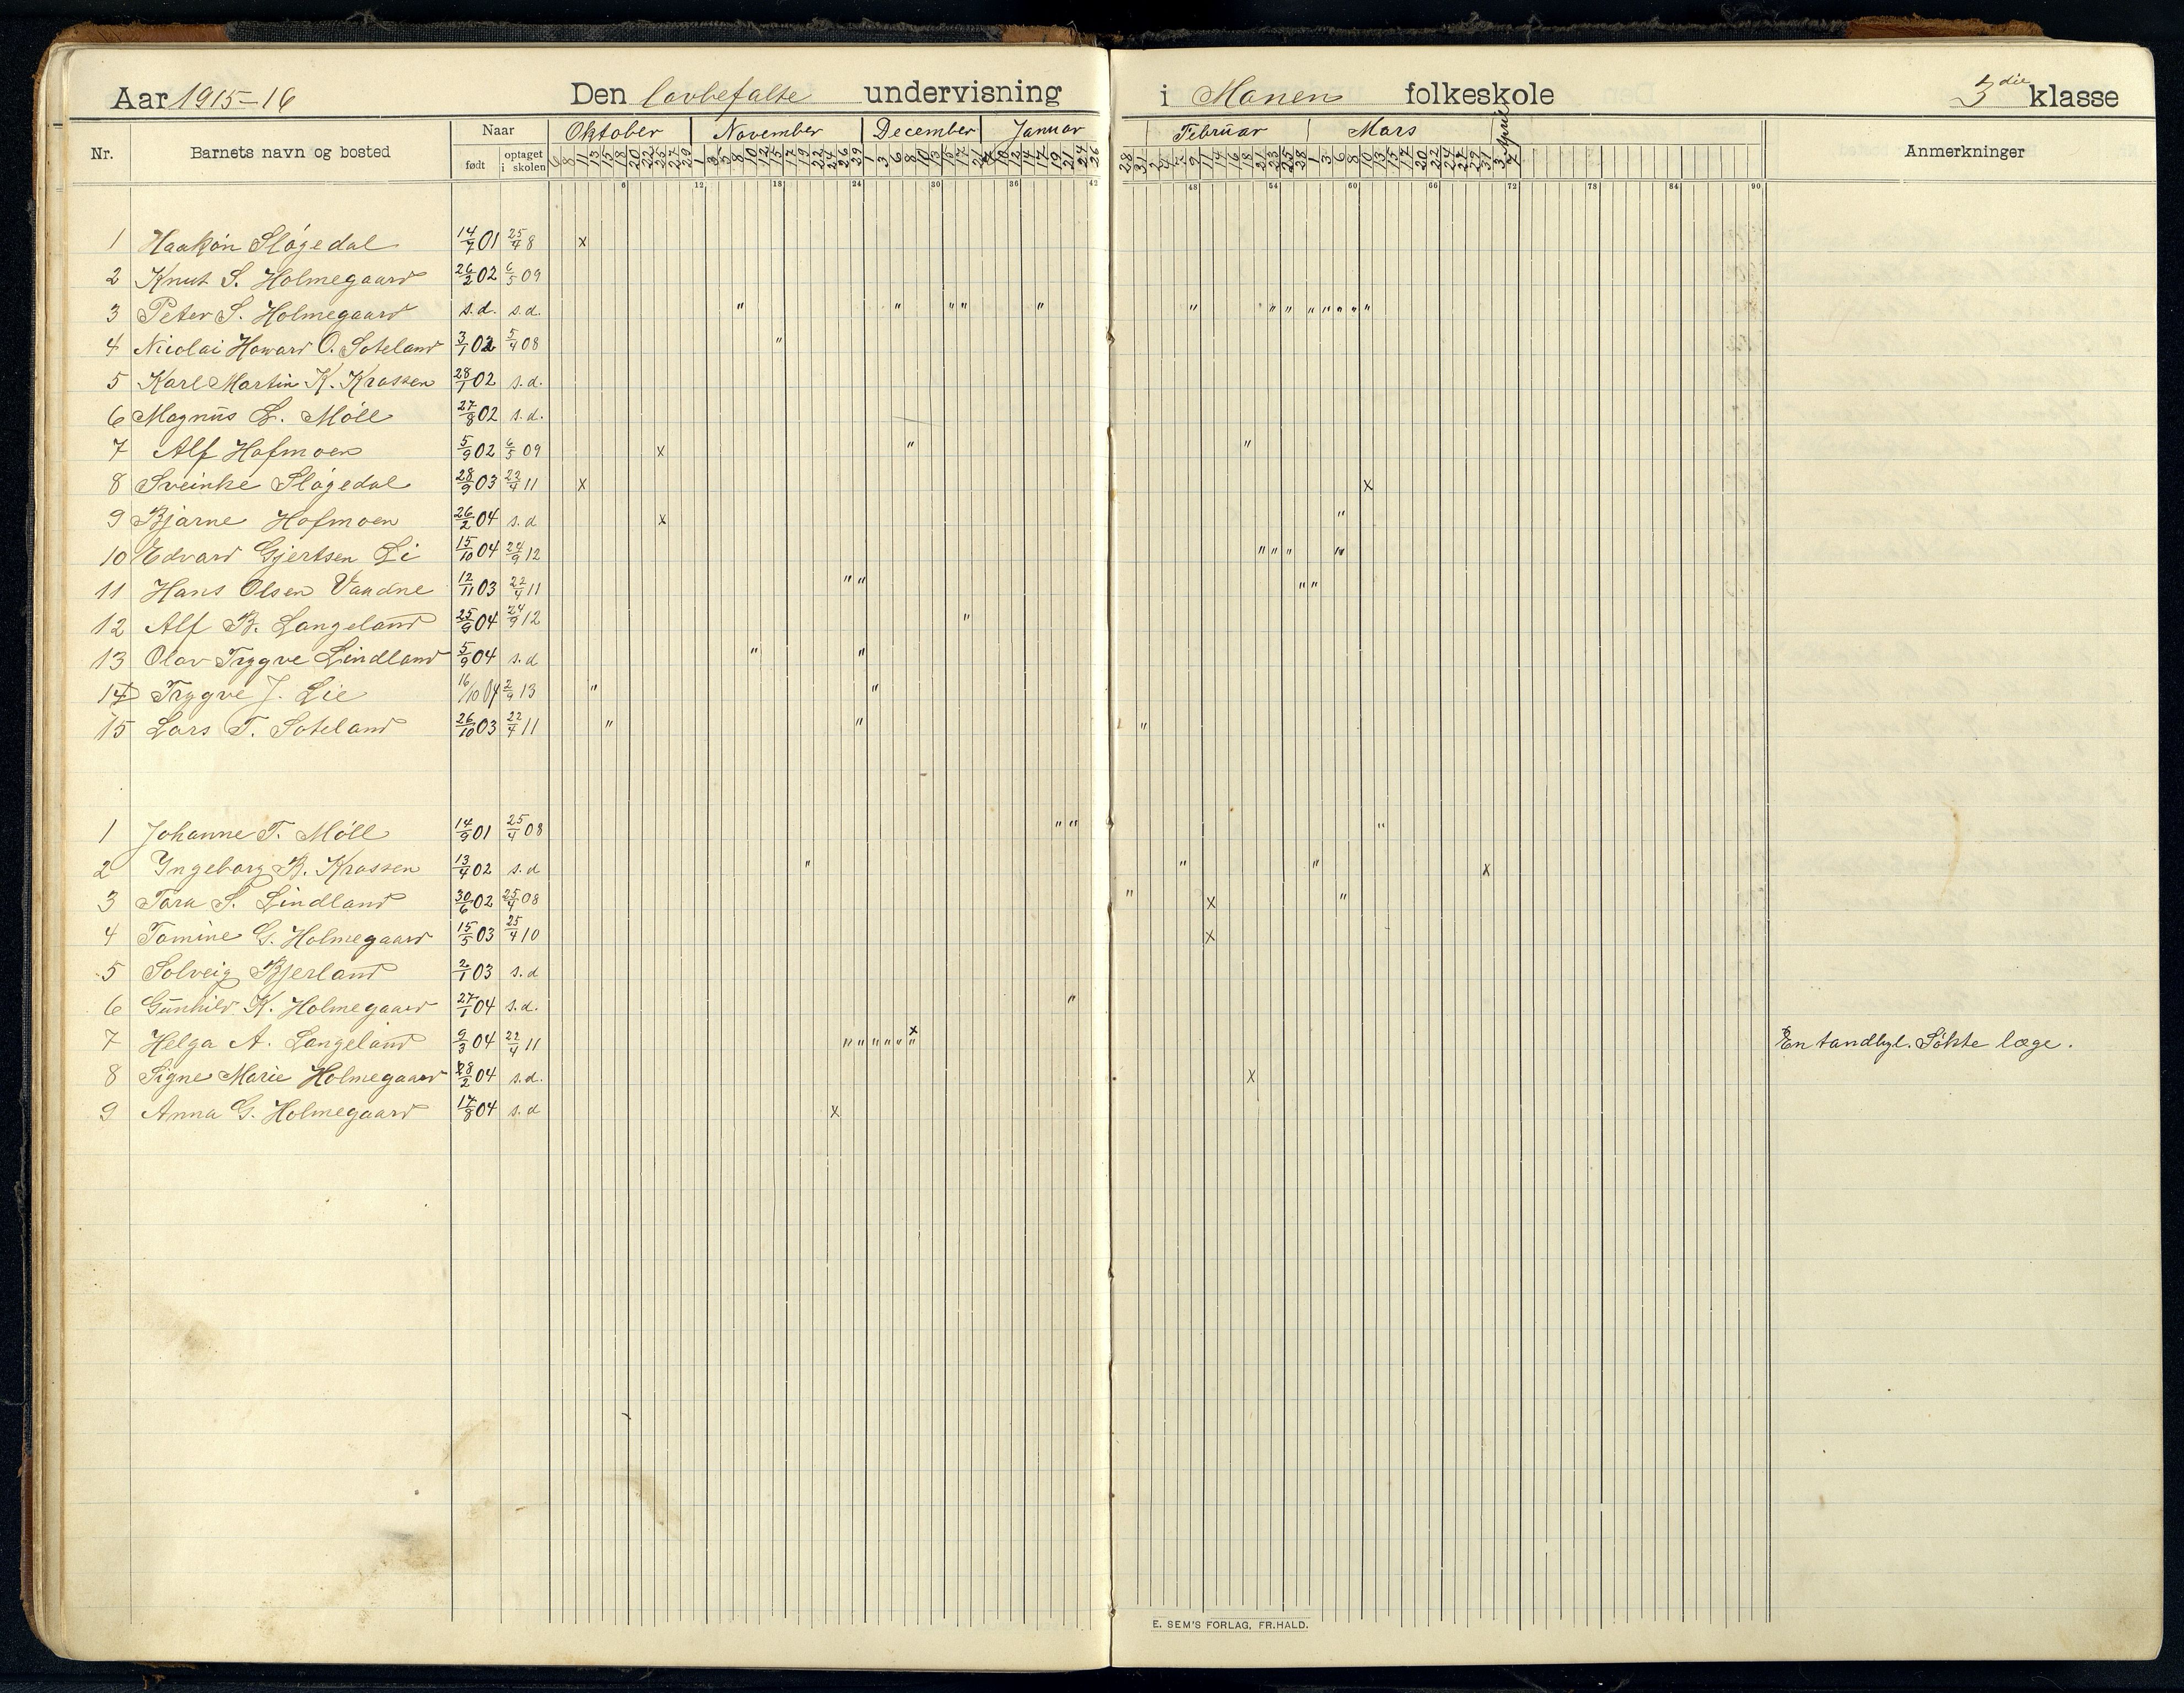 Aar 1915-16 Den lovbefalte undervisning i Monen folkeskole 3die klasse
Nr. Barnets navn og bosted Naar født optaget i skolen Oktober November December Januar Februar Mars April Anmerkninger
6 12 18 24 30 36 42 48 54 60 66 72 78 84 90
1 Haakon Sløgedal 14/7 01 25/4 8 x
2 Knut S. Holmegaard 26/2 02 6/5 09
3 Peter S. Holmegaard s.d. s.d. " " " " " " " " " " " " "
4 Nicolai Howard O. Soteland 3/1 02 5/4 08 "
5 Karl Martin K. Krossen 28/1 02 s.d.
6 Magnus L. Möll 27/8 02 s.d.
7 Alf Hofmoen 5/9 02 6/5 09 x " "
8 Sveinke Sløgedal 28/9 03 22/4 11 x x
9 Bjarne Hofmoen 26/2 04 s.d x "
10 Edvard Gjertsen Li 15/10 04 24/9 12 " " " "
11 Hans Olsen Vaadne 12/11 03 22/4 11 " " " "
12 Alf B. Langeland 25/9 04 24/9 12 "
13 Olav Trygve Lindland 5/9 04 s.d " "
14 Trygve J. Lie 16/10 04 2/9 13 " "
15 Lars T. Soteland 26/10 03 22/4 11 " " "
1 Johanne T. Möll 14/9 01 25/4 08 " " "
2 Yngeborg B. Krossen 13/4 02 s.d " " " x
3 Tora S. Lindland 30/6 02 25/4 08 " x "
4 Tomine G. Holmegaard 15/5 03 25/4 10 x
5 Solveig Bjerland 2/1 03 s.d
6 Gunhild K. Holmegaard 27/1 04 s.d. "
7 Helga A. Langeland 9/3 04 22/4 11 " " " " " " x En tandbyl. Søkte læge.
8 Signe Marie Holmegaard 28/2 04 s.d. x
9 Anna G. Holmegaard 17/8 04 s.d x
E. SEM'S FORLAG, FR.HALD.